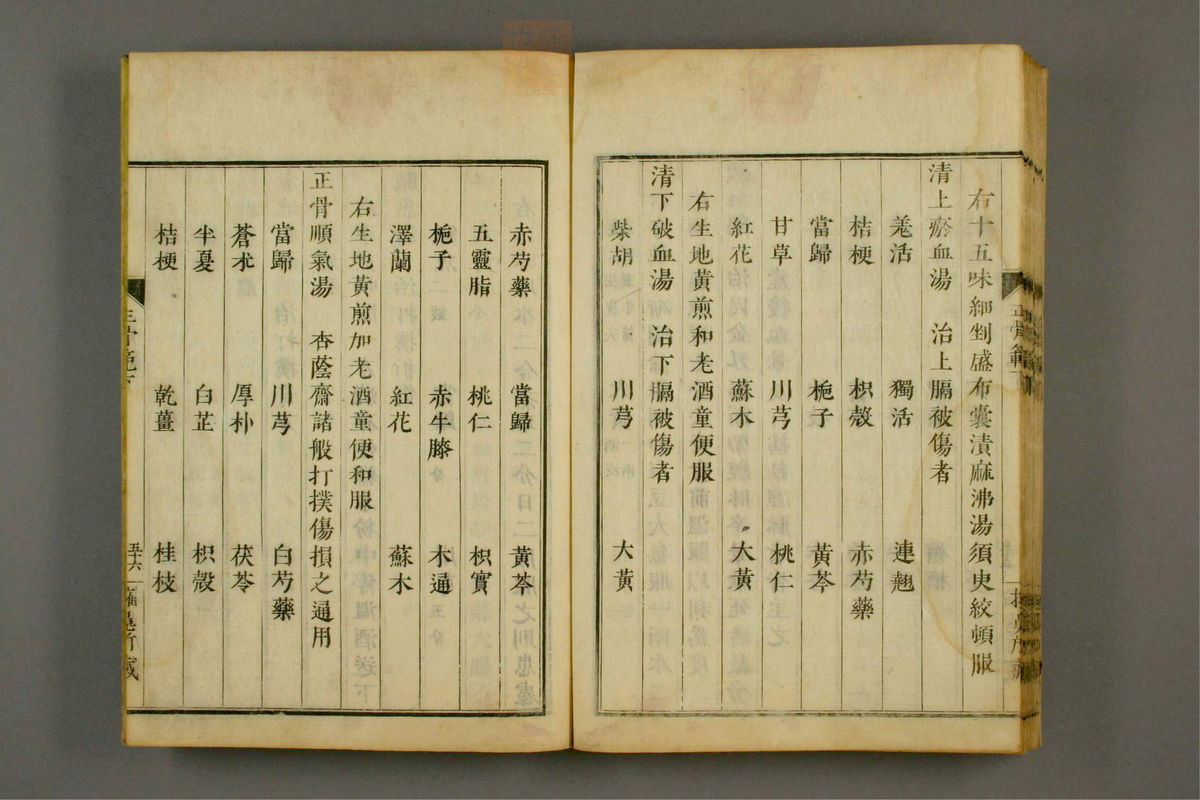 右十五味細剉盛布囊漬麻沸湯須臾絞頓服
清上瘀血湯　治上膈被傷者
羗活　獨活　連翹
桔梗　枳殼　赤芍藥
當歸　梔子　黃芩
甘草　川芎　桃仁
紅花　蘇木　大黃
右生地黃煎和老酒童便服
清下破血湯　治下膈被傷者
柴胡　川芎　大黃
赤芍藥　當歸　黃芩
五靈脂　桃仁　枳實
梔子　赤牛膝　木通
澤蘭　紅花　蘇木
右生地黃煎加老酒童便和服
正骨順氣湯　杏蔭齋諸般打撲傷損之通用
當歸　川芎　白芍藥
蒼朮　厚朴　茯苓
半夏　白芷　枳殼
桔梗　乾薑　桂枝
正骨範下　五十六